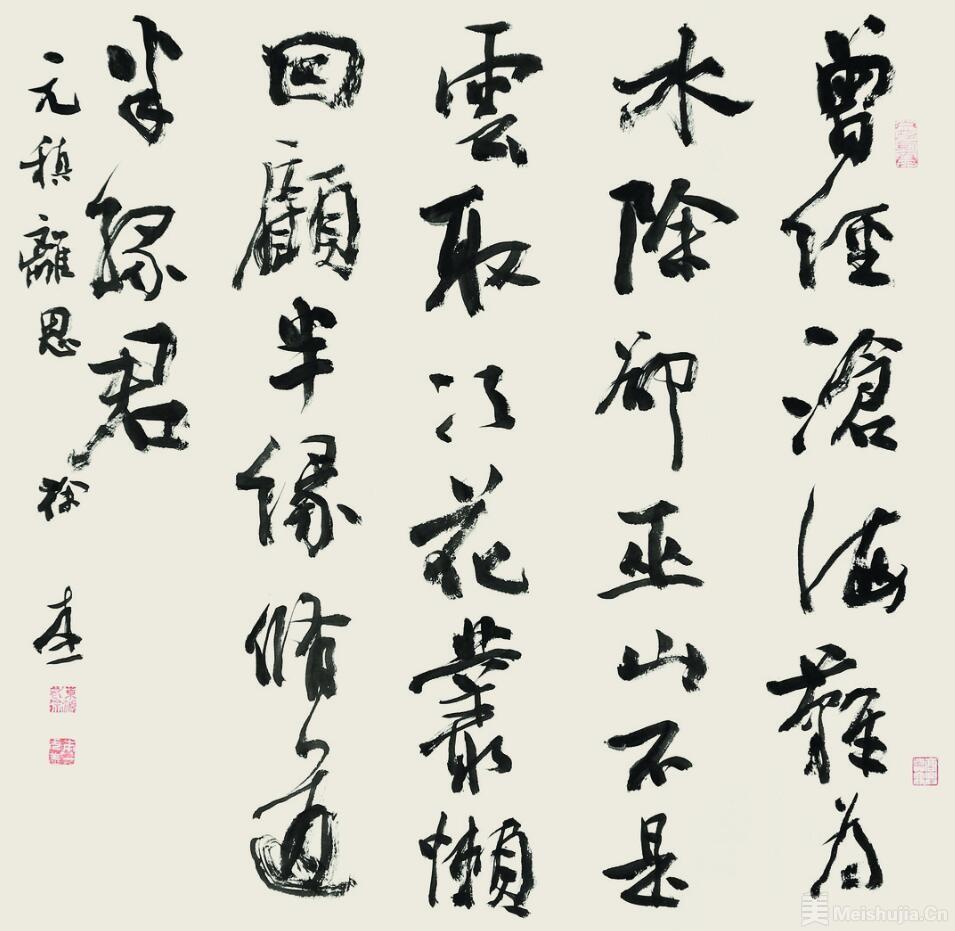 曾經滄海難為
水除卻巫山不是
雲取次花叢懶
回顧半緣脩道
半緣君
元稹離思 徐
Meishujia.Cn